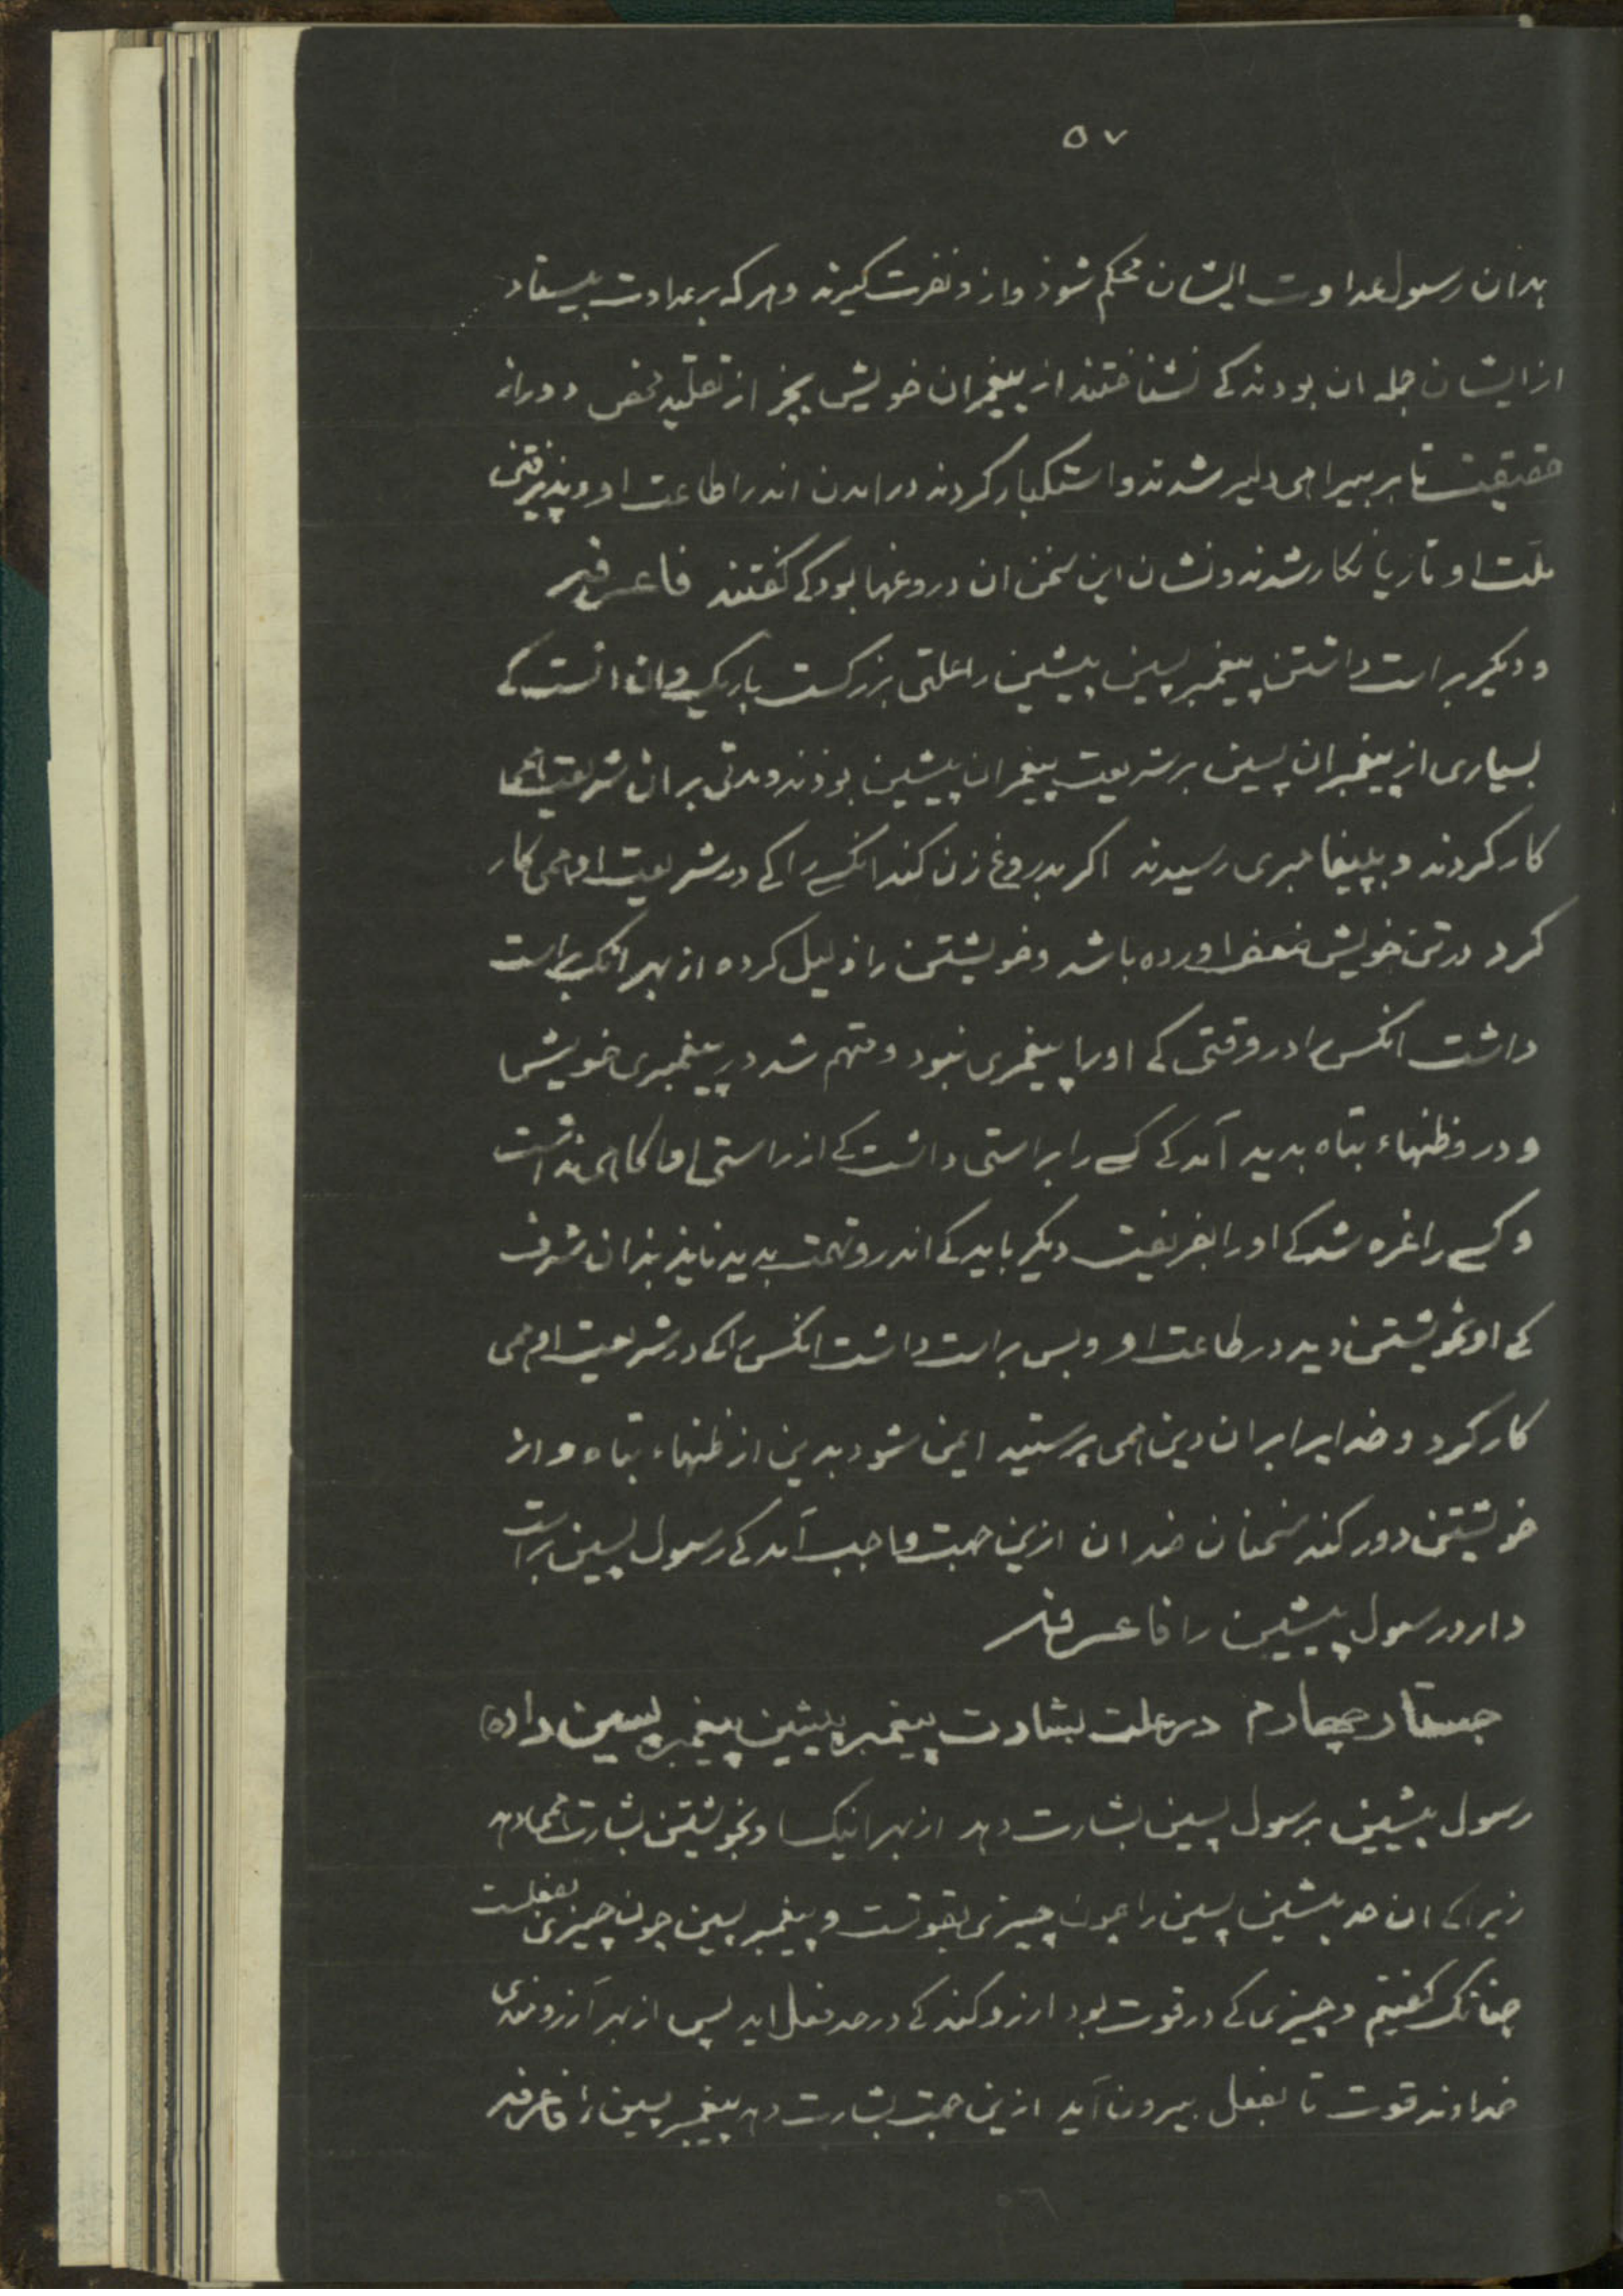 ٥٧
بدان رسول عداوت ایشان محکم شوذ وازو نفرت کیرند وهرکه بر عداوت بیستاد
از ایشان جمله ان بودند کے نشناختند از پیغمبران خویش بجز از تقلید محض دورانه
حقیقت تا بر بیراهی دلیر شدند و استکبار کردند در امدن اندر اطاعت او و پذیرفتن
ملّت او تا زیانکار شدند و نشان این سخن ان دروغها بود کے کفتند فاعرفه
و دیکر براست داشتن پیغمبر پسین پیشین را علتی بزرکست باریک و ان انست کے
بسیاری از پیغمبران پسین بر شریعت پیغمبران پیشین بوذند و مدتی بر ان شریعتها
کار کردند و بپیغامبری رسیدند اکر بدروغ زن کند انکس را کے در شریعت او همی کار
کرد در تن خویش نقض اورده باشد و خویشتن را ذلیل کرده از بهر انک براست
داشت انکس را در وقتی کے اورا پیغمبری نبود و متهم شد در پیغمبری خویش
و درو ظنهاء تباه بدید آمد کے کسے را براستی داشت کے از راستی اکاهی نداشت
و کسے را غره شد کے اورا بفریفت دیکر باید کے اندرو تهمت بدید نایذ بذان شرف
کے او بخویشتن دید در طاعت او و پس براست داشت انکس را کے در شریعت او همی
کار کرد و خدایرا بران دین همی پرستید ایمن شود بدین از ظنهاء تباه و از
خویشتن دور کند سخنان ضدان ازین جهت واجب آمد کے رسول پسین براست
دارد رسول پیشین را فاعرفه
جستار چهارم در علت بشارت پیغمبر پیشین پیغمبر پسین را (٥)
رسول پیشین برسول پسین بشارت دهد از بهر انیک او بخویشتن بشارت همی دهد
زیراکے ان حد پیشین پسین را چون چیزی بقوتست و پیغمبر پسین چون چیزی بفعلست
چنانک کفتیم و چیزی کے در قوت بود ارزو کند کے در حد فعل اید پس از بهر آرزومندی
خداوند قوت تا بفعل بیرون آید ازین جهت بشارت دهد پیغمبر پسین را فاعرفه